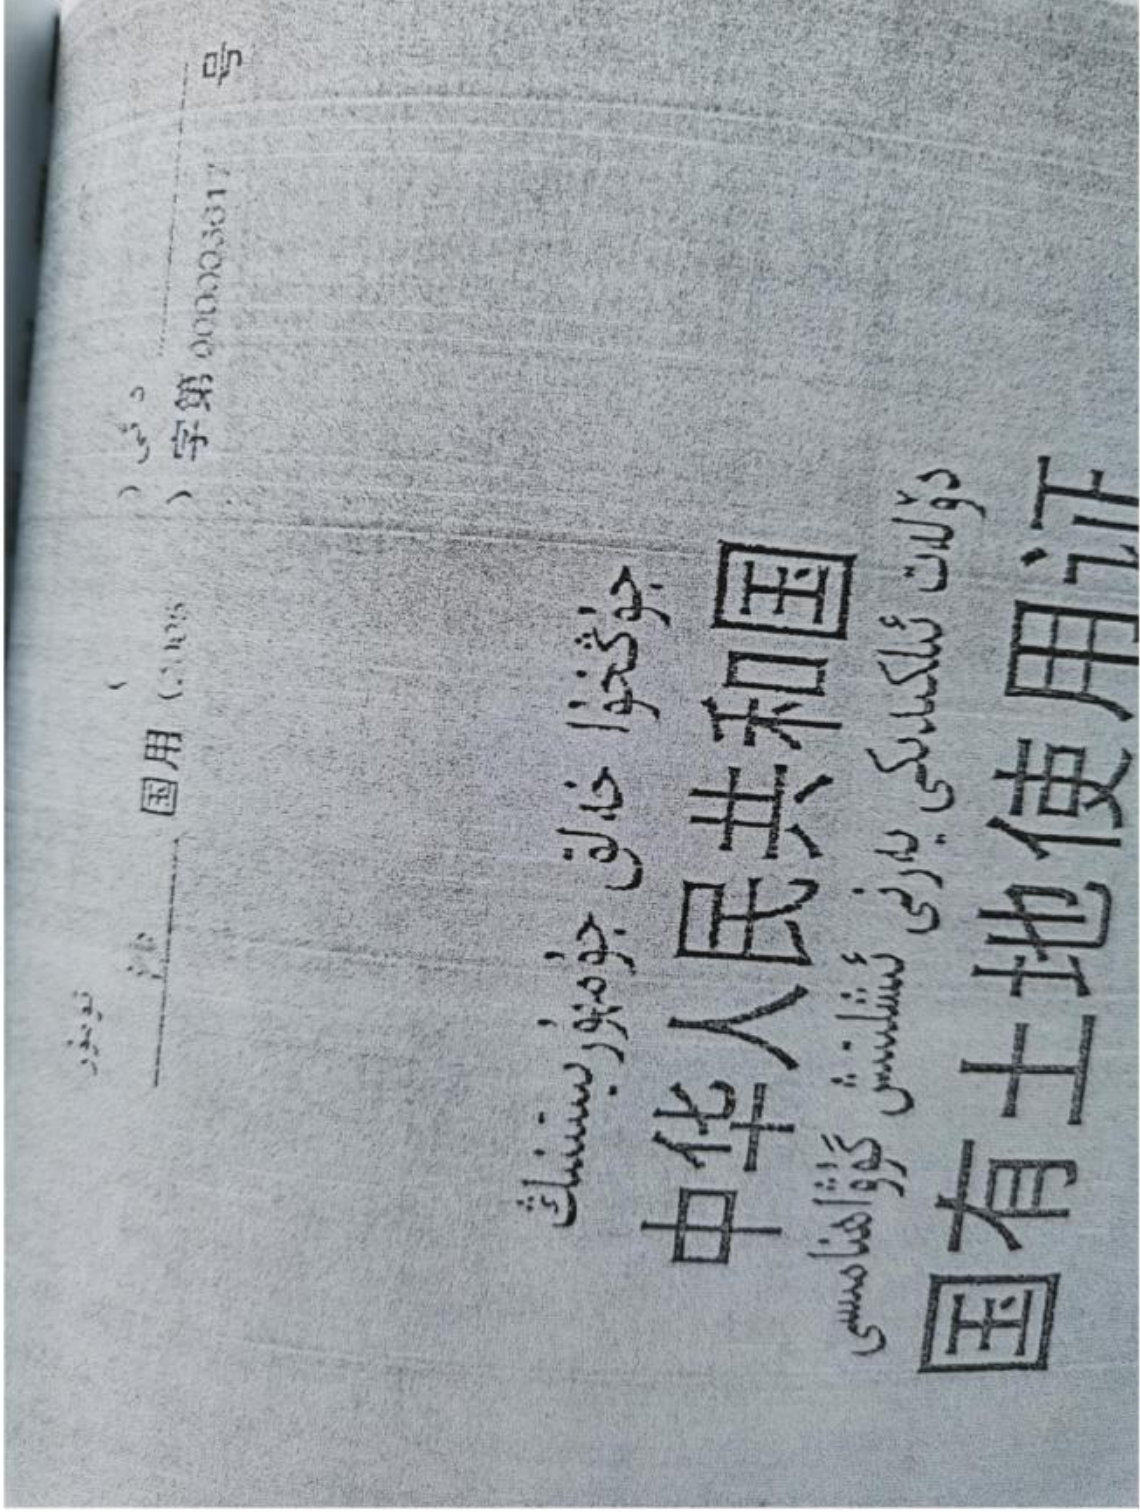 国用（2005）字第 000003617 号
جۇڭخۇا خەلق جۇمھۇرىيىتىنىڭ
中华人民共和国
دۆلەت ئىلكىدىكى يەرنى ئىشلىتىش گۇۋاھنامىسى
国有土地使用证